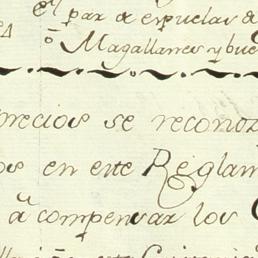 el par de espuelas d
Magallanes y bue
precios se reconoz
os en este Reglam
à compensar los